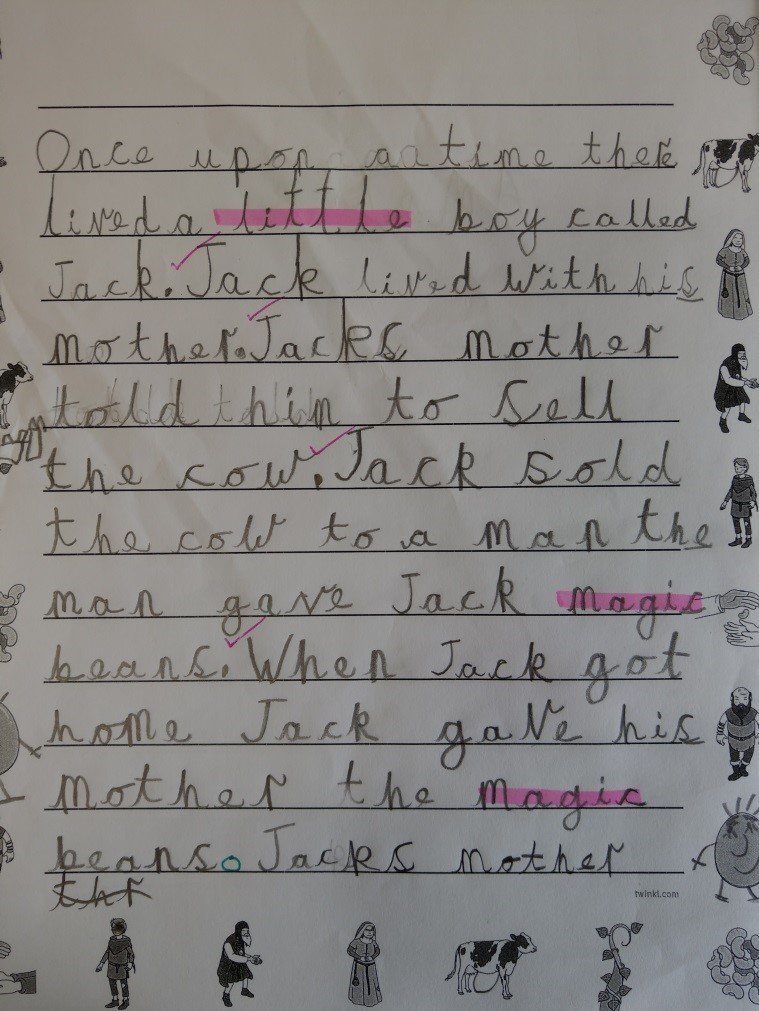 Once upon a a time there
lived a little boy called
Jack. Jack lived with his
mother. Jacks mother
told him to sell
the cow. Jack sold
the cow to a man the
man gave Jack magic
beans. When Jack got
home Jack gave his
mother the magic
beans. Jacks mother
thr
twinkl.com